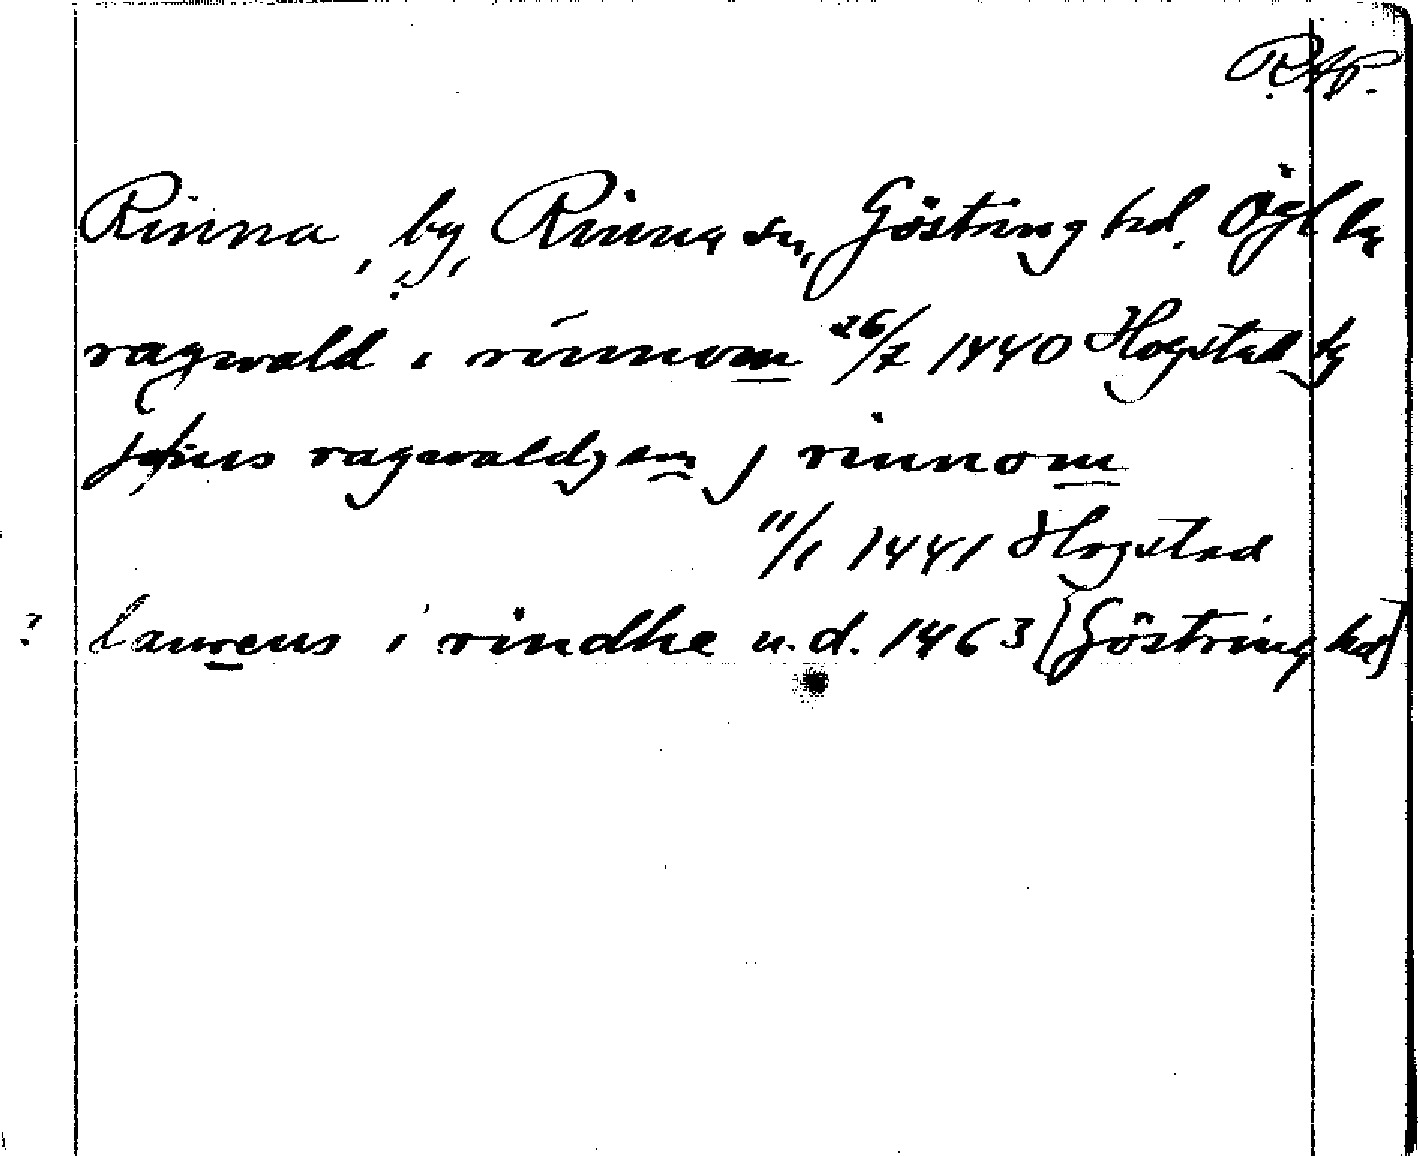 RAP.
Rinna, by, Rinna sn, Göstring hd. Ögl lä
ragwald i rinnom 26/7 1440 Hogstad fg
johus ragwaldzson j rinnom
11/1 1441 Hogstad
? laurens i rindhe u.d. 1463 (Göstring hd)